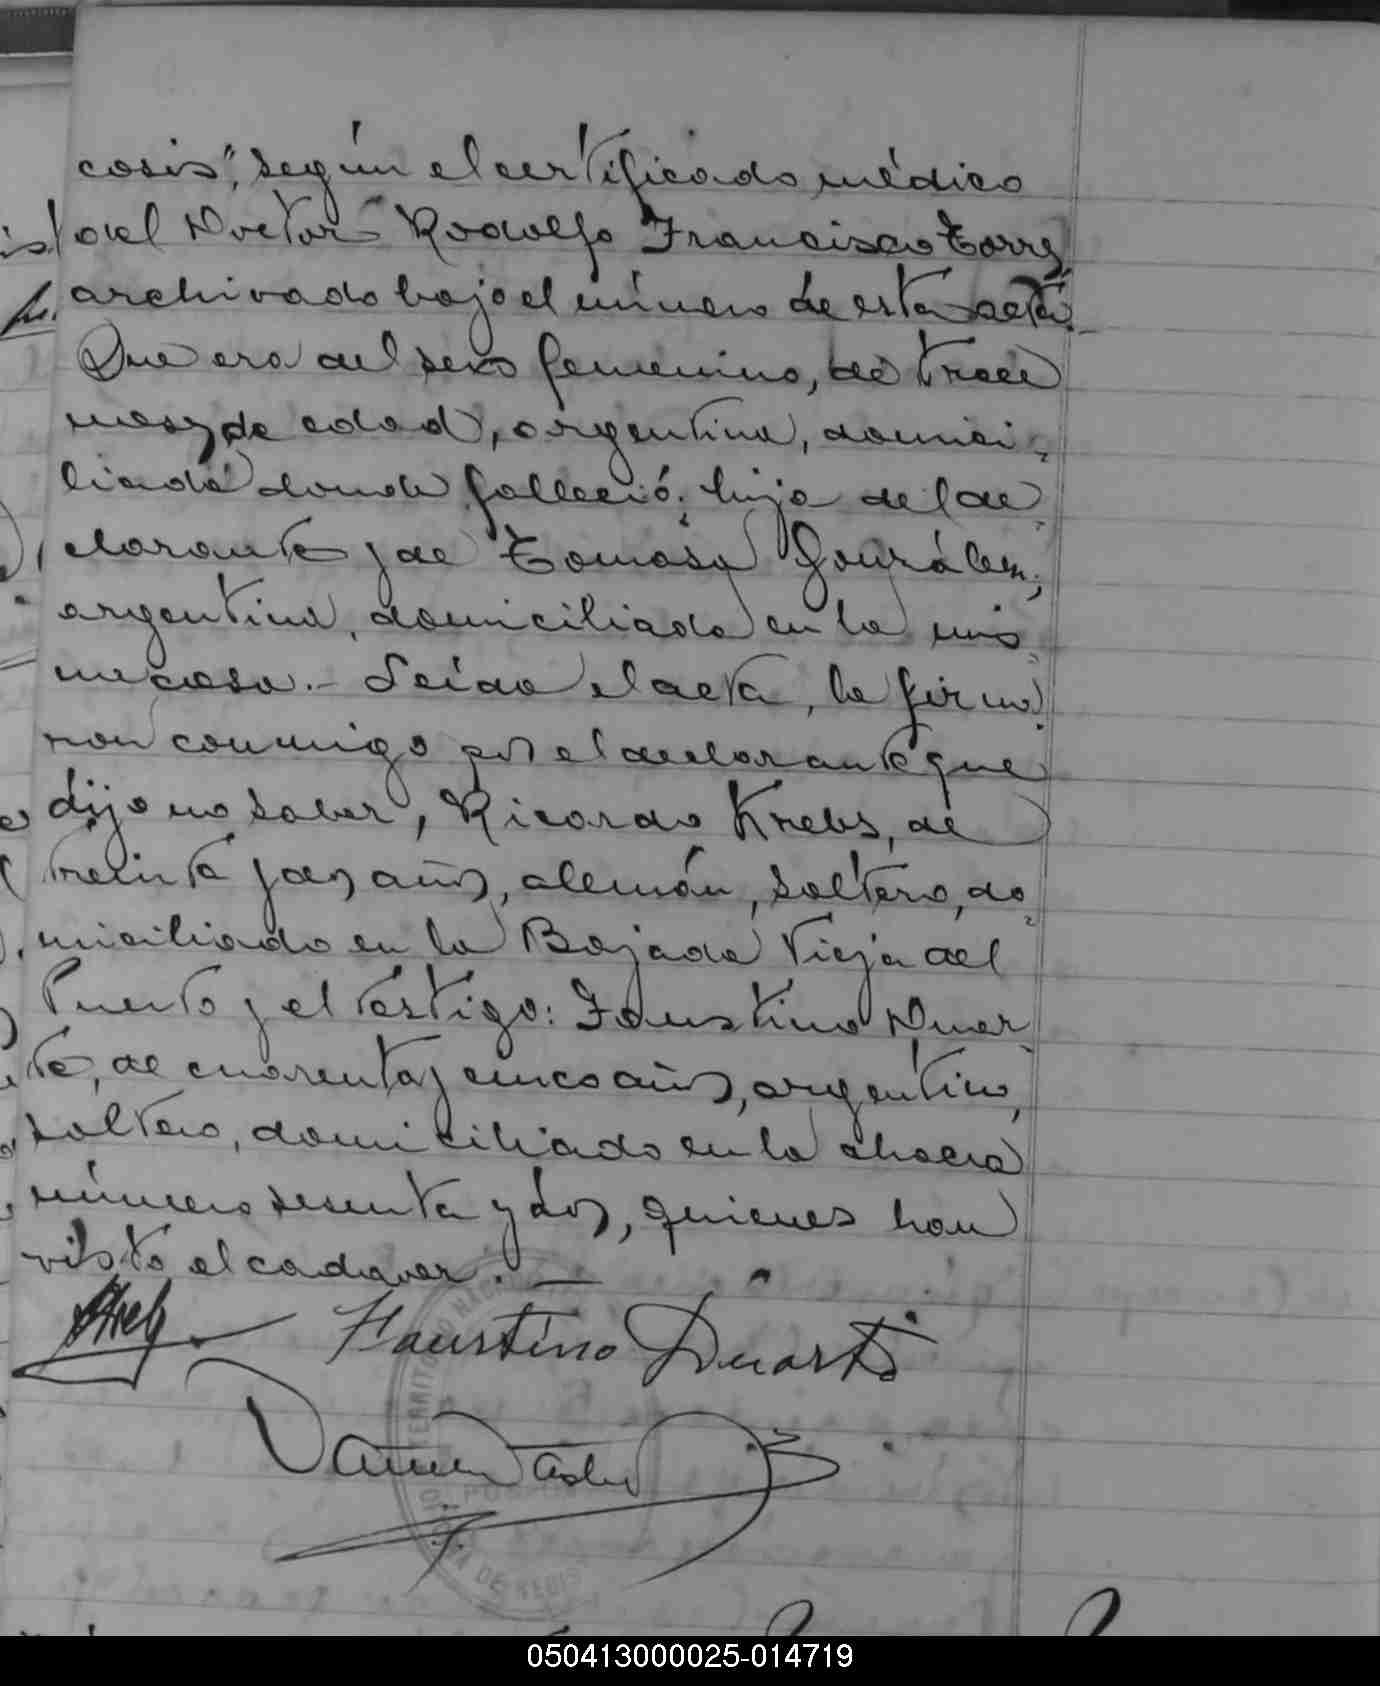 cosis", según el certificado médico
del Doctor Rodolfo Francisco Torres
archivado bajo el número de esta acta.
Que era del sexo femenino, de trece
meses de edad, argentina, domici-
liada donde falleció; hija del de-
clarante y de Tomasa González,
argentina, domiciliada en la mis-
ma casa.- Leída el acta, la firma-
ron conmigo por el declarante que
dijo no saber, Ricardo Krebs, de
treinta y dos años, alemán, soltero, do-
miciliado en la Bajada Vieja del
Puerto y el testigo: Faustino Duar-
te, de cuarenta y cinco años, argentino,
soltero, domiciliado en la chacra
número sesenta y dos, quienes han
visto el cadaver.—
Faustino Duarte
TERRITORIO NAC
DE REGIS
050413000025-014719